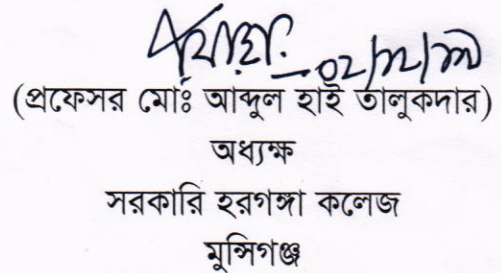 (প্রফেসর মোঃ আব্দুল হাই তালুকদার)
অধ্যক্ষ
সরকারি হরগঙ্গা কলেজ
মুন্সিগঞ্জ